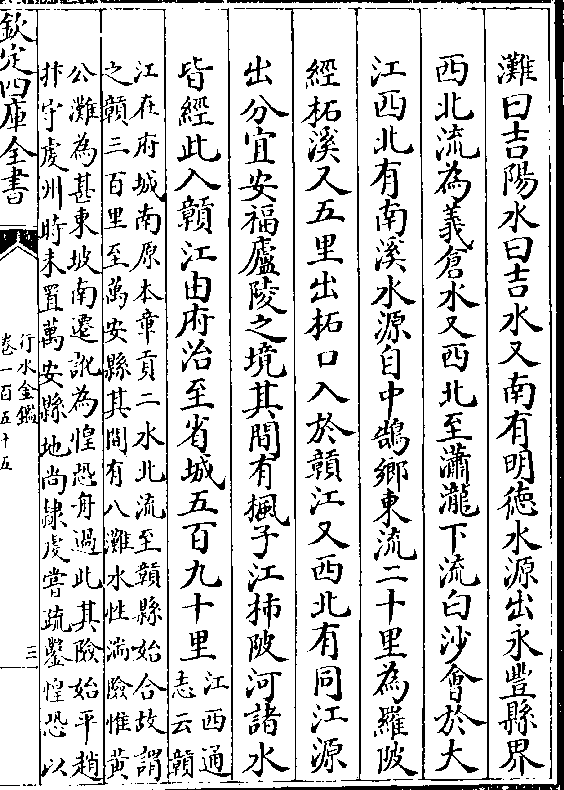 灘曰吉陽水曰吉水又南有明徳水源出永豐縣界
西北流為義倉水又西北至瀟瀧下流白沙會於大
江西北有南溪水源自中鵠鄉東流二十里為羅陂
經柘溪又五里出柘口入於贛江又西北有同江源
出分宜安福廬陵之境其間有楓子江柿陂河諸水
皆經此入贛江由府治至省城五百九十里
江西通
志云贛
江在府城南原本章貢二水北流至贛縣始合故謂
之贛三百里至萬安縣其間有八灘水性湍險惟黄
公灘為甚東坡南遷訛為惶恐舟過此其險始平趙
抃守虔州時未置萬安縣地尚隸虔嘗疏鑿惶恐以
欽定四庫全書
行水金鑑
卷一百五十五
三